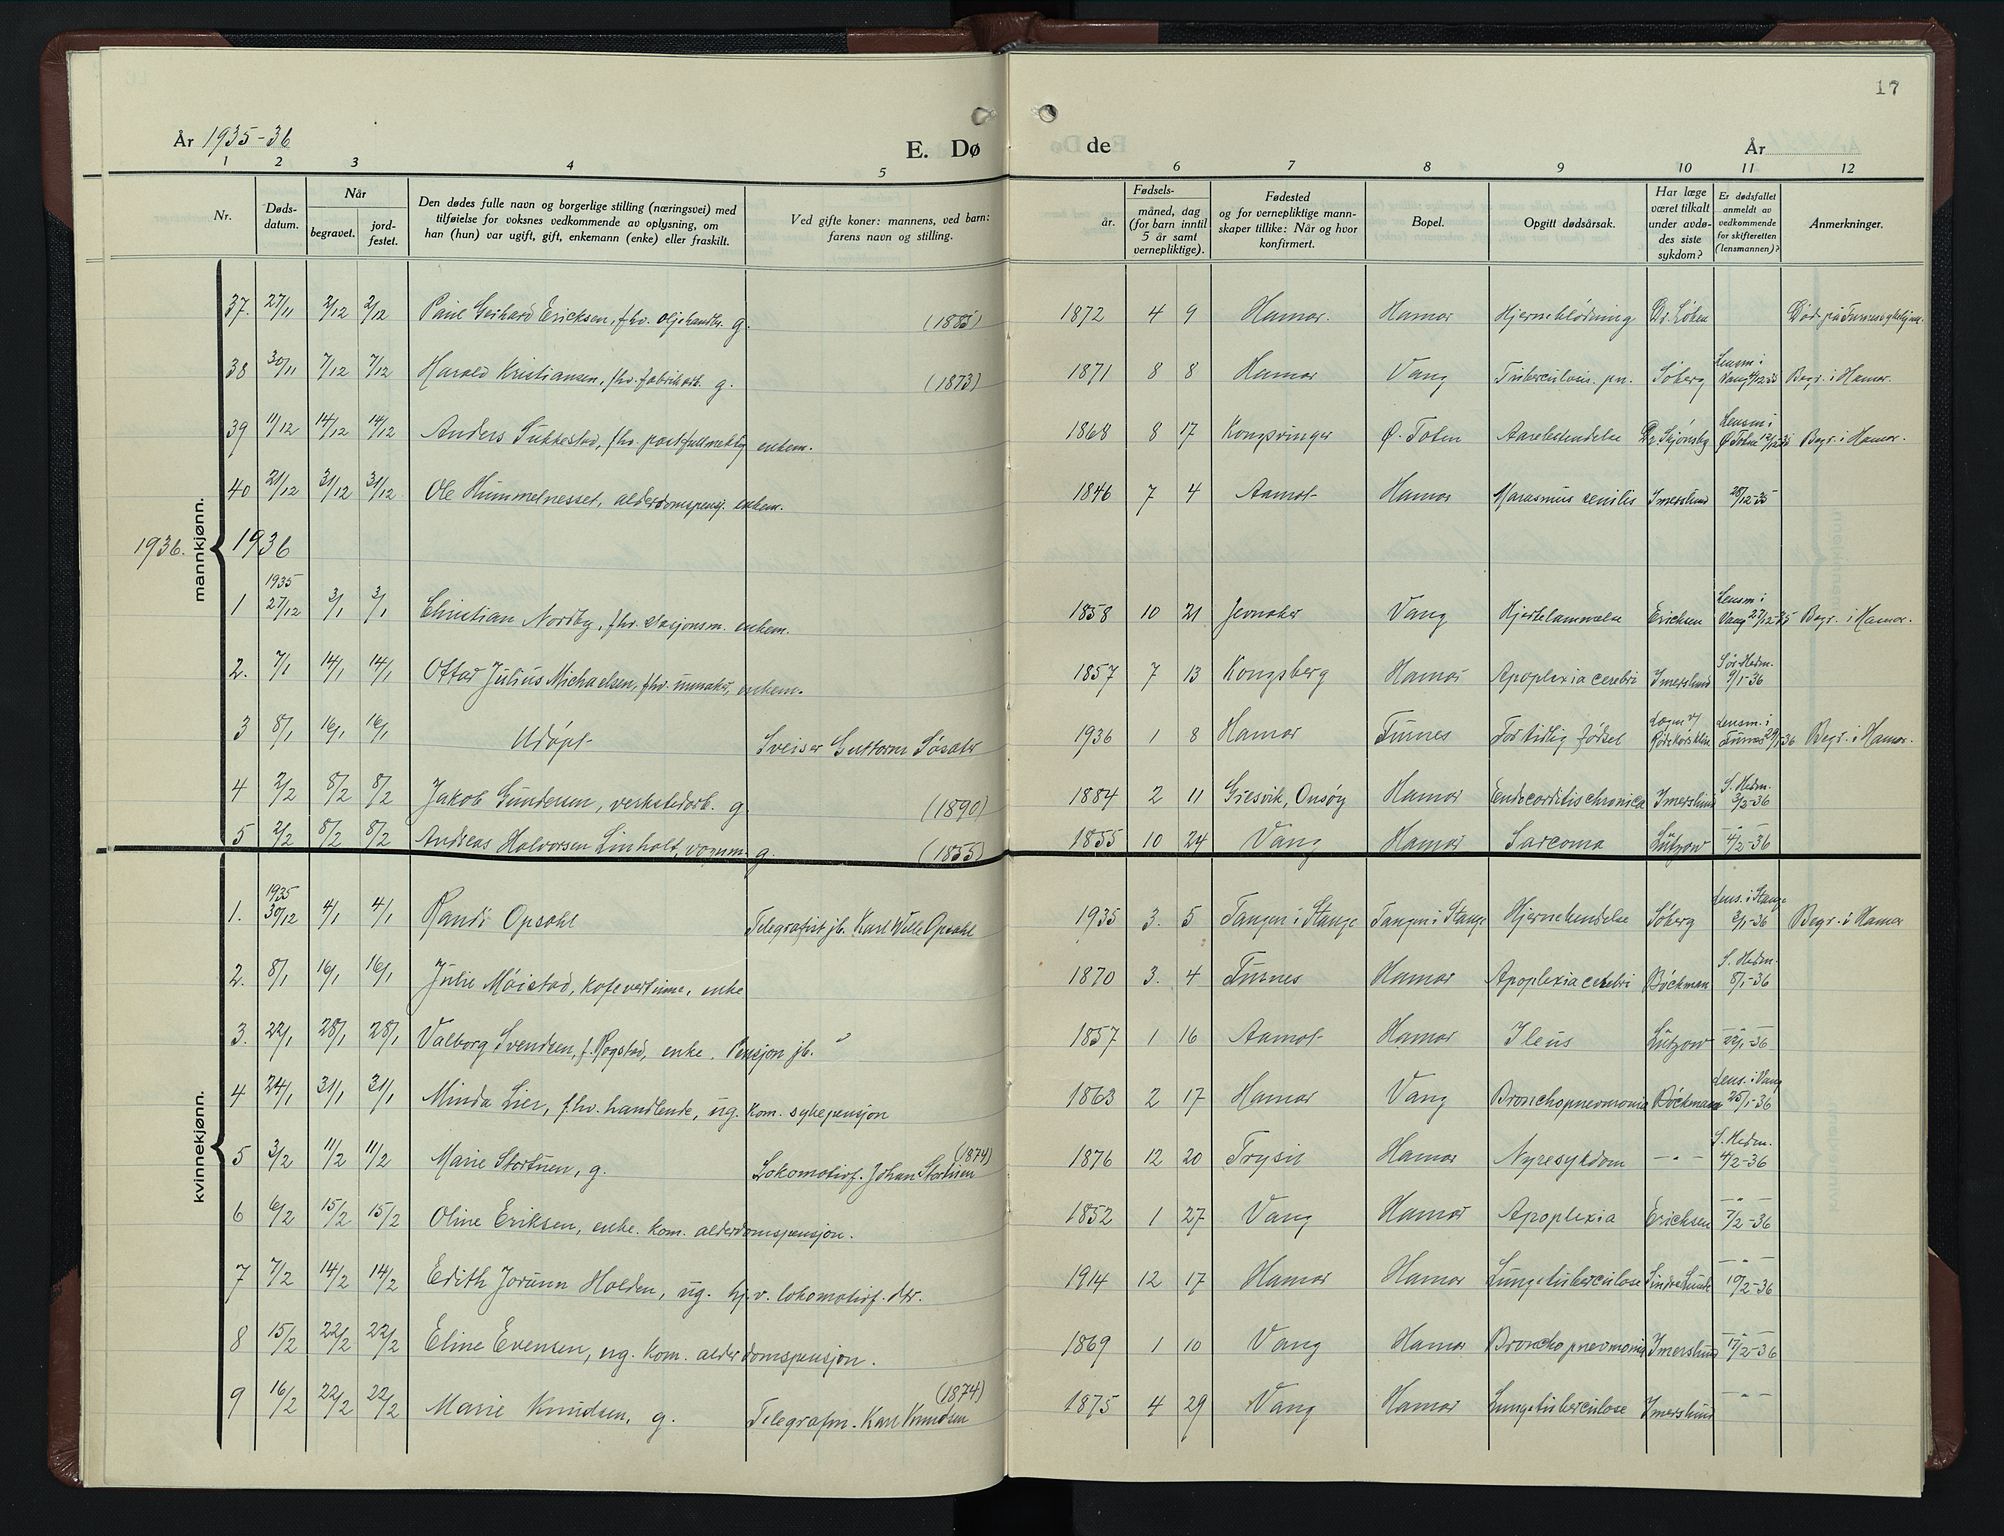 17
År 1935-36
E. Dø
de
År
1 2 3 4 5
6 7 8 9 10 11 12
Nr.
Døds-
datum.
Når
begravet.
jord-
festet.
Den dødes fulle navn og borgerlige stilling (næringsvei) med
tilføielse for voksnes vedkommende av oplysning, om
han (hun) var ugift, gift, enkemann (enke) eller fraskilt.
Ved gifte koner: mannens, ved barn:
farens navn og stilling.
Fødsels-
år.
måned, dag
(for barn inntil
5 år samt
vernepliktige).
Fødested
og for vernepliktige mann-
skaper tillike: Når og hvor
konfirmert.
Bopel.
Opgitt dødsårsak.
Har læge
været tilkalt
under avdø-
des siste
sykdom?
Er dødsfallet
anmeldt av
vedkommende
for skifteretten
(lensmannen)?
Anmerkninger.
mannkjønn.
37. 27/11 2/12 2/12 Paul Gerhard Ericksen, fhv. oljehandler. g. (1885) 1872 4 9 Hamar. Hamar Hjerneblødning Dr. Løken Død på Furnes sykehjem.
38 30/11 7/12 7/12 Harald Kristiansen, fhv. fabrikarb. g. (1873) 1871 8 8 Hamar Vang Tuberculosis. pn. Søberg Lensm i Vang 4/12 35 Begr. i Hamar.
39 11/12 14/12 14/12 Anders Sukkestad, fhv. postfullmektig enkem. 1868 8 17 Kongsvinger Ø. Toten Aarebetendelse Dr. Sejonsby Lensm i Ø Toten 12/12-35 Begr. i Hamar.
40 21/12 31/12 31/12 Ole Hummelnesset, alderdomspensj. enkem. 1846 7 4 Aamot Hamar Marasmus senilis Imerslund 28/12-35
1936. 1936
1 1935 27/12 3/1 3/1 Christian Nordby, fhv. stasjonsm. enkem. 1858 10 21 Jevnaker Vang Hjertelammelse Ericksen Lensm i Vang 27/12-35 Begr. i Hamar.
2. 7/1 14/1 14/1 Ottar Julius Michaelsen, fhv. urmaker, enkem. 1857 7 13 Kongsberg Hamar Apoplexia cerebri Imerslund Sør Hedm. 9/1-36
3 8/1 16/1 16/1 Udøpt Sveiser Guttorm Søsæter 1936 1 8 Hamar Furnes For tidlig fødsel Lægen v/ Rødekorsklin Lensm. i Furnes 29/1 36 Begr. i Hamar.
4 2/2 8/2 8/2 Jakob Gundersen, verkstedarb. g. (1890) 1884 2 11 Gresvik, Onsøy Hamar Endocarditis chronica Imerslund S. Hedm. 3/2-36
5 2/2 8/2 8/2 Andreas Halvorsen Linholt, vognm. g. (1855) 1855 10 24 Vang Hamar Sarcoma Lützow -"- 4/2-36
kvinnekjønn.
1. 1935 30/12 4/1 4/1 Randi Opsahl Telegrafist jb. Karl Wille Opsahl 1935 3. 5 Tangen i Stange Tangen i Stange Hjernebetendelse Søberg Lens. i Stange 2/1-36 Begr. i Hamar
2. 8/1 16/1 16/1 Julie Møistad, kafevertinne, enke 1870 3. 4 Furnes Hamar Apoplexia cerebri Bøckman S. Hedm. 8/1-36
3. 22/1 28/1 28/1 Valborg Svendsen, f. Rogstad, enke. Pensjon jb. 1857 1 16 Aamot Hamar Ileus Lützow -"- 22/1-36
4 24/1 31/1 31/1 Minda Lier, fhv. handlende, ug. kom. sykepensjon 1863 2 17 Hamar Vang Bronchopneomonia Bøckman Lens. i Vang 25/1-36
5 3/2 11/2 11/2 Marie Stortuen, g. (1874) Lokomotivf. Johan Stortuen 1876 12 20 Trysil Hamar Nyresykdom -"- S. Hedm. 4/2-36
6 6/2 15/2 15/2 Oline Eriksen, enke. kom. alderdomspensjon. 1852 1 27 Vang Hamar Apoplexia Ericksen -"- 7/2-36
7 7/2 14/2 14/2 Edith Jorunn Holden, ug. hj. v. lokomotivf. dtr. 1914 12 17 Hamar Hamar Lungetuberculose Sindre Lunde -"- 10/2-36
8 15/2 22/2 22/2 Eline Evensen, ug. kom. alderdomspensjon. 1869 1 10 Vang Hamar Bronchopneomonia Imerslund -"- 17/2-36
9 16/2 22/2 22/2 Marie Knudsen, g. (1874) Telegrafm. Karl Knudsen 1875 4 29 Vang Hamar Lungetuberculose Imerslund -"-